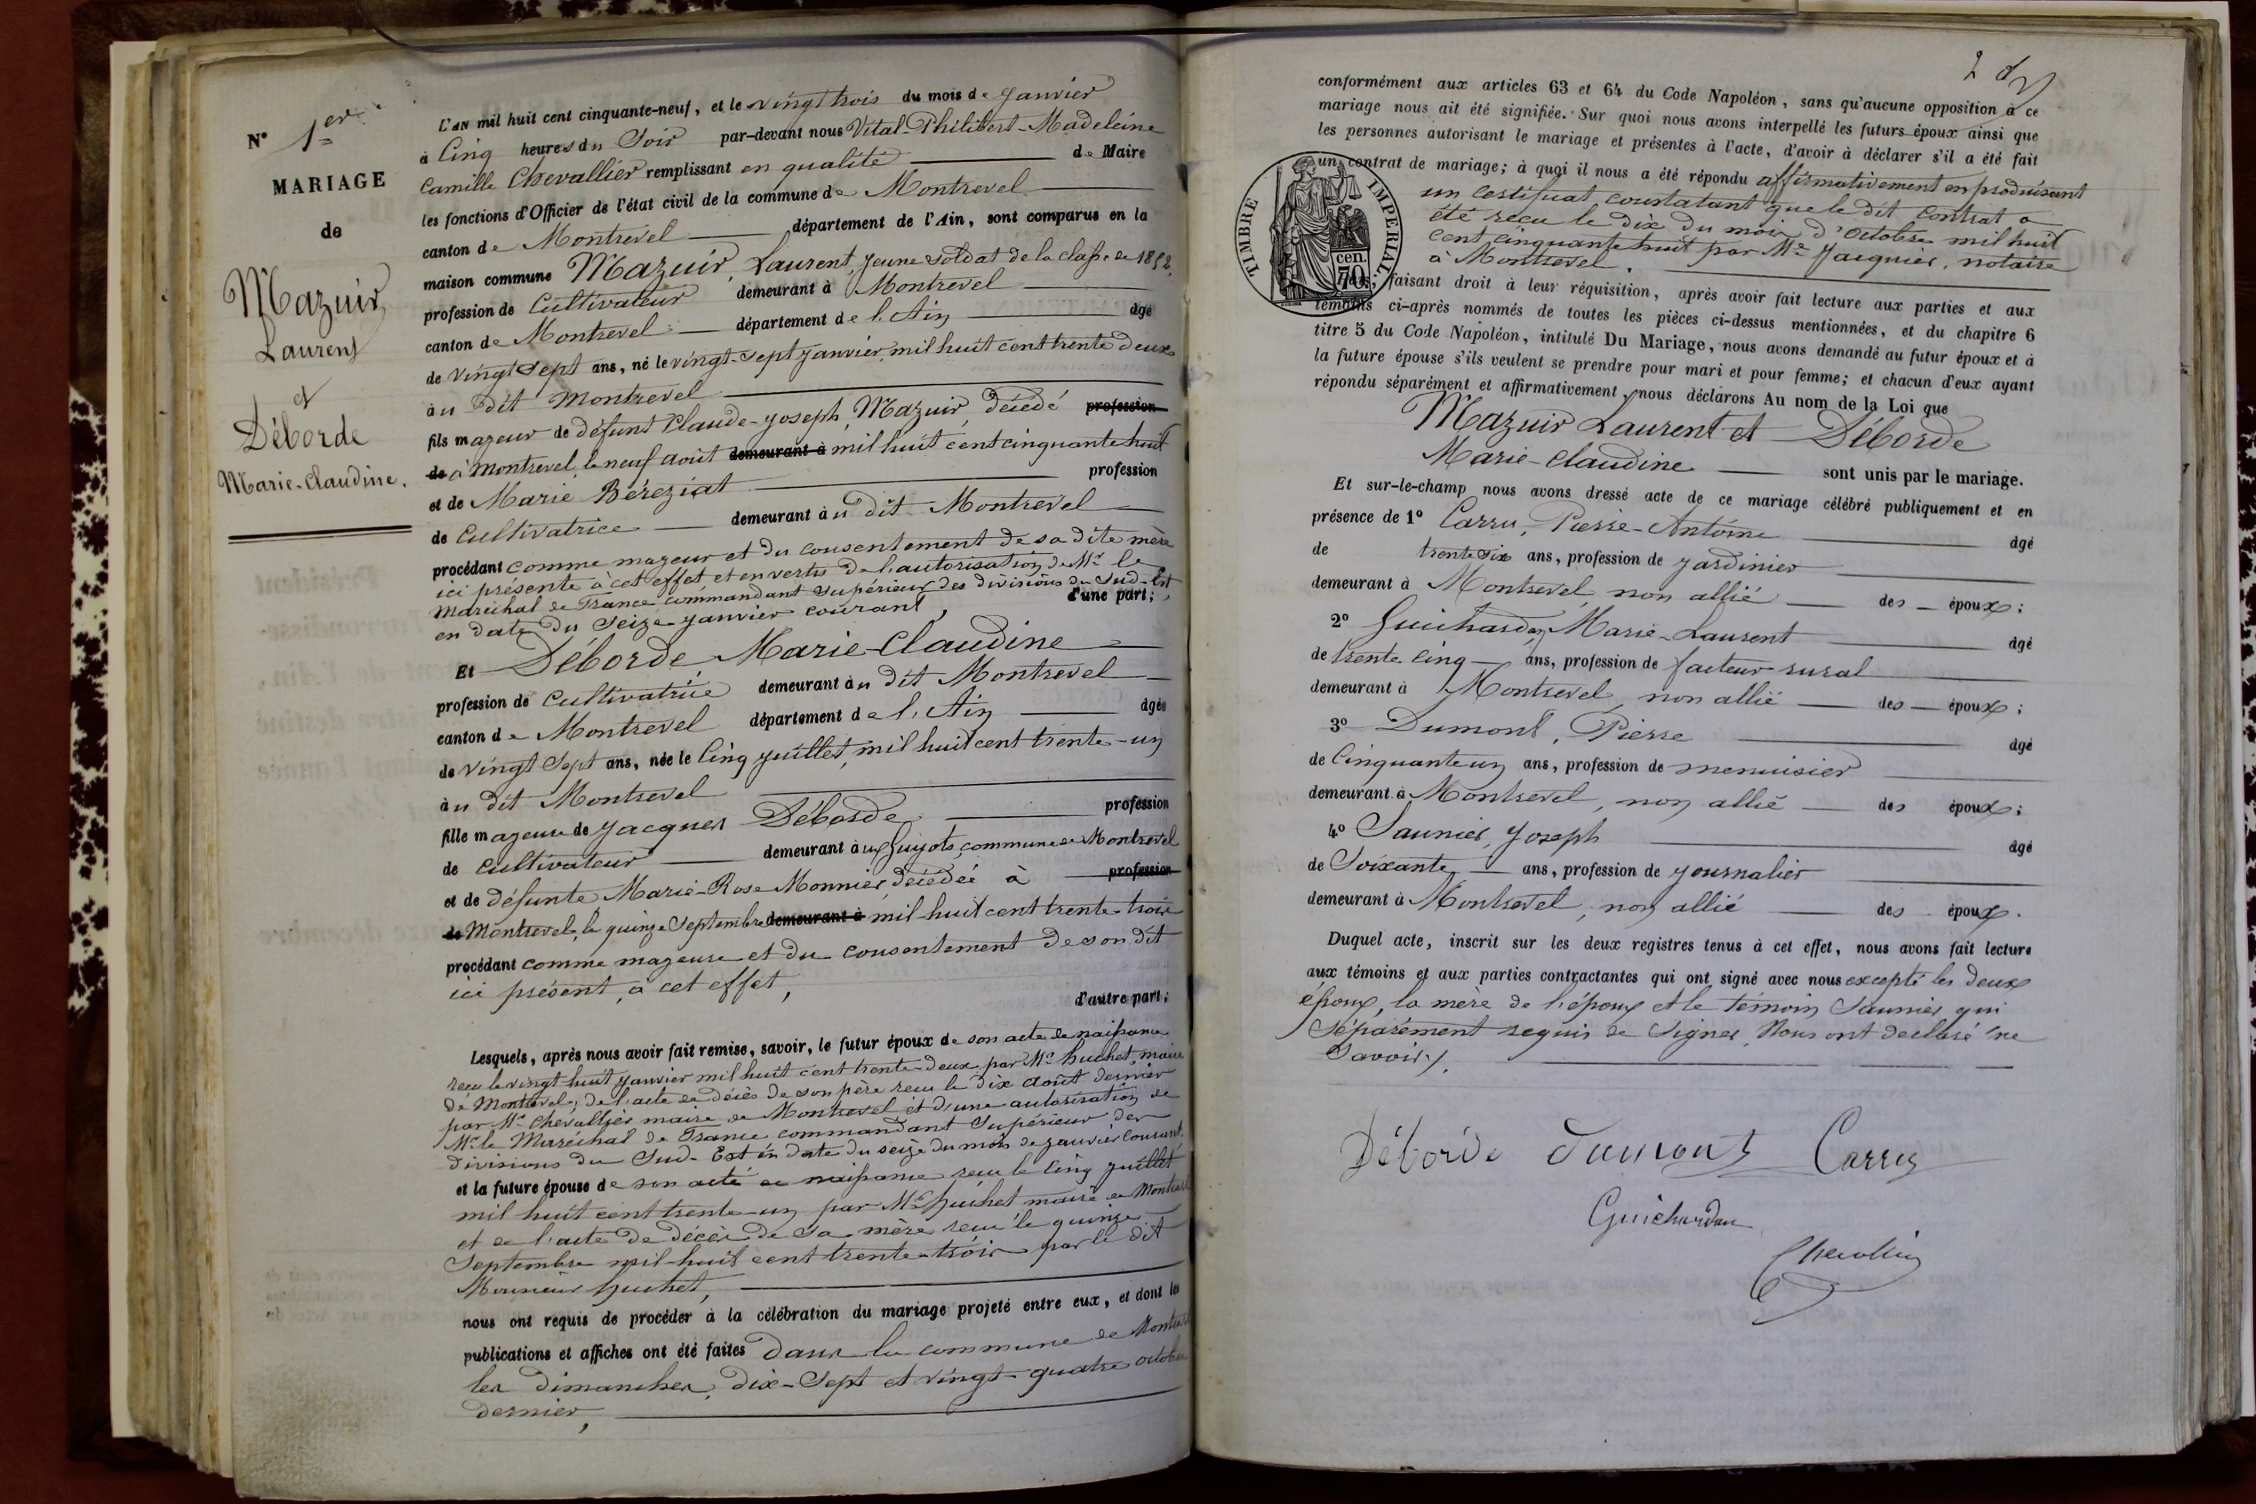 N° 1er
MARIAGE
de
Mazuir
Laurent
et
Déborde
Marie-Claudine.
L'AN mil huit cent cinquante-neuf, et le vingt trois du mois de Janvier
à Cinq heures du Soir par-devant nous Vital-Philibert-Madeleine
Camille Chevallier remplissant en qualité de Maire
les fonctions d'Officier de l'état civil de la commune de Montrevel
canton de Montrevel département de l'Ain, sont comparus en la
maison commune Mazuir, Laurent, jeune soldat de la classe de 1852,
profession de Cultivateur demeurant à Montrevel
canton de Montrevel département de l'Ain âgé
de vingt sept ans, né le vingt-sept janvier mil huit cent trente deux
au dit Montrevel
fils majeur de défunt Claude-Joseph Mazuir, décédé profession
de à Montrevel, le neuf août demeurant à mil huit cent cinquante huit
et de Marie Béréziat profession
de Cultivatrice demeurant au dit Montrevel
procédant comme majeur et du consentement de sa dite mère
ici présente à cet effet et en vertu de l'autorisation de Mr le
Maréchal de France commandant supérieur des divisions du Sud-Est
en date du seize janvier courant, d'une part;
Et Déborde Marie-Claudine
profession de cultivatrice demeurant au dit Montrevel
canton de Montrevel département de l'Ain âgée
de vingt sept ans, née le Cinq juillet, mil huit cent trente-un
au dit Montrevel
fille majeure de Jacques Déborde profession
de cultivateur demeurant aux Guyots, commune de Montrevel
et de défunte Marie-Rose Monnier décédée à profession
de Montrevel, le quinze Septembre demeurant à mil-huit cent trente-trois
procédant comme majeure et du consentement de son dit
ici présent, à cet effet, d'autre part;
Lesquels, après nous avoir fait remise, savoir, le futur époux de son acte de naissance
reçu le vingt-huit janvier mil huit cent trente-deux par Mr huchet, maire
de Montrevel; de l'acte de décès de son père reçu le dix août dernier
par Mr Chevallier maire de Montrevel et d'une autorisation de
Mr le Maréchal de France commandant Supérieur des
divisions du Sud-Est en date du seize du mois de janvier courant.
et la future épouse de son acte de naissance reçu le cinq juillet
mil huit cent trente-un par Mr huchet maire de Montrevel
et de l'acte de décès de sa mère reçu le quinze
Septembre mil-huit cent trente-trois par le dit
Monsieur huchet,
nous ont requis de procéder à la célébration du mariage projeté entre eux, et dont les
publications et affiches ont été faites dans la commune de Montrevel
les dimanches, dix-sept et vingt-quatre octobre
dernier,
2
conformément aux articles 63 et 64 du Code Napoléon, sans qu'aucune opposition à ce
mariage nous ait été signifiée. Sur quoi nous avons interpellé les futurs époux ainsi que
les personnes autorisant le mariage et présentes à l'acte, d'avoir à déclarer s'il a été fait
un contrat de mariage; à quoi il nous a été répondu affirmativement en produisant
un certificat constatant que le dit contrat a
été reçu le dix du mois d'octobre mil huit
cent cinquante huit par Me Jacquier, notaire
à Montrevel.
TIMBRE IMPERIAL
cen.
70
faisant droit à leur réquisition, après avoir fait lecture aux parties et aux
témoins ci-après nommés de toutes les pièces ci-dessus mentionnées, et du chapitre 6
titre 5 du Code Napoléon, intitulé Du Mariage, nous avons demandé au futur époux et à
la future épouse s'ils veulent se prendre pour mari et pour femme; et chacun d'eux ayant
répondu séparément et affirmativement, nous déclarons Au nom de la Loi que
Mazuir Laurent et Déborde
Marie-Claudine sont unis par le mariage.
Et sur-le-champ nous avons dressé acte de ce mariage célébré publiquement et en
présence de 1° Carru, Pierre-Antoine âgé
de trente six ans, profession de jardinier
demeurant à Montrevel, non allié des époux;
2° Guichardon, Marie-Laurent âgé
de trente cinq ans, profession de facteur rural
demeurant à Montrevel, non allié des époux;
3° Dumont, Pierre âgé
de Cinquante un ans, profession de menuisier
demeurant à Montrevel, non allié des époux;
4° Saunier, Joseph âgé
de Soixante ans, profession de journalier
demeurant à Montrevel, non allié des époux.
Duquel acte, inscrit sur les deux registres tenus à cet effet, nous avons fait lecture
aux témoins et aux parties contractantes qui ont signé avec nous excepté les deux
époux, la mère de l'époux et le témoin Saunier qui
séparément requis de signer, Nous ont déclaré ne
savoir.
Déborde Dumont Carru
Guichardon
Chevallier